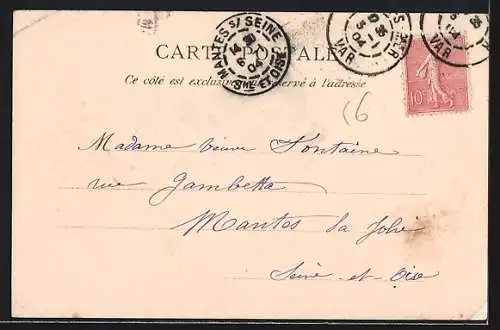 CARTE POSTALE
MANTES S/ SEINE
6 04
SNE ET OISE
VAR
VAR
10
Ce côté est exclusivement réservé à l'adresse
(6
Madame Veuve Fontaine
rue Gambetta
Mantes la Jolie
Seine-et-Oise